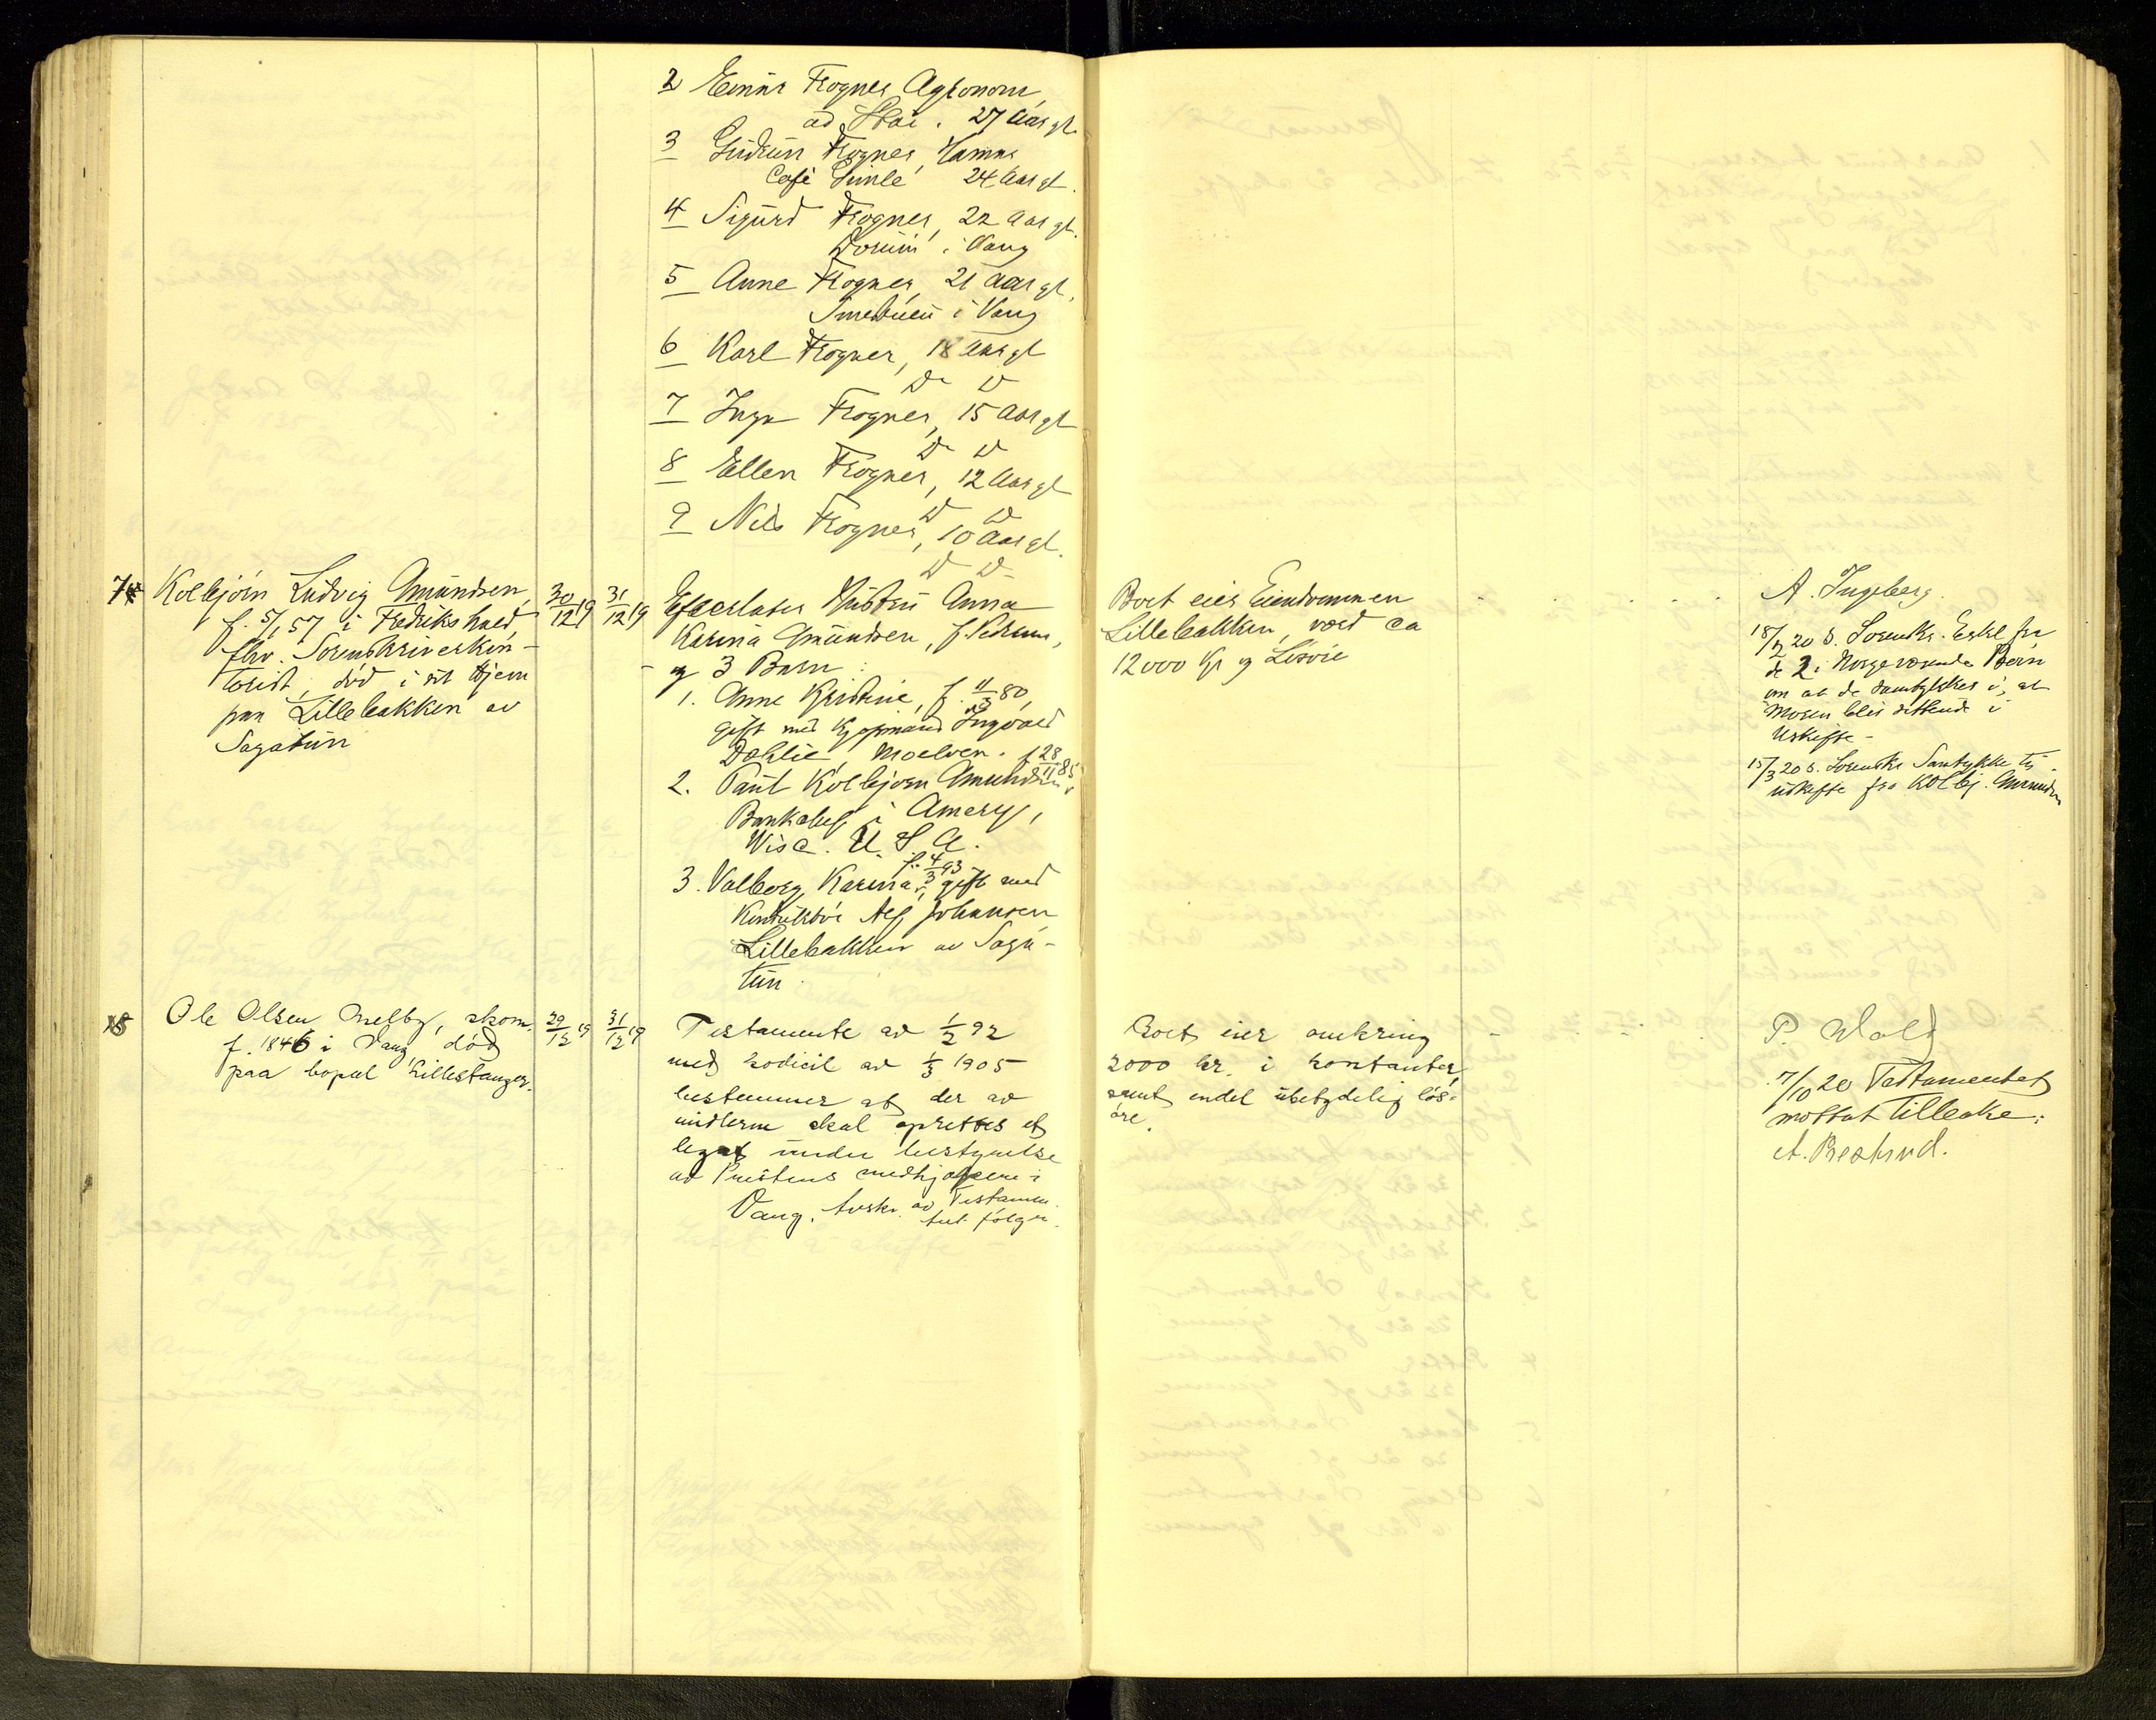 2 Einar Frogner Agronom,
ad Stai. 27 Aar gl.
3 Gudrun Frogner, Hamar
Café Gimle 24 Aar gl.
4 Sigurd Frogner, 22 Aar gl.
i Vang
5 Anne Frogner, 21 Aar gl,
Smestuen i Vang
6 Karl Frogner, 18 Aar gl
Do Do
7 Inga Frogner, 15 Aar gl
Do Do
8 Ellen Frogner, 12 Aar gl
Do Do
9 Nils Frogner, 10 Aar gl.
Do Do
7 Kolbjörn Ludvig Amundsen,
f. 5/1 57 i Fredrikshald,
fhv. Sorenskriverkon-
torist, död i sit Hjem
paa Lillebakken av
Sagatun
30/12 19
31/12 19
Efterlater Hustru Anna
Karina Amundsen, f. Pedersen,
og 3 Barn:
1. Anne Kristine, f. 11/3 80,
gift med Kjøpmand Ingvald
Dæhlie, Moelven.
2. Paul Kolbjørn Amundsen, f 28/11 85
Bankchef i Amery,
Wisc. U. S. A.
3. Valborg Karina, f. 4/3 93, gift med
Konduktör Alf Johansen
Lillebakken av Saga-
tun.
Boet eier Eiendommen
Lillebakken, værd ca
12000 Kr og Lösöre
A. Ingeberg.
18/2 20 s. Sorenskr. Erkl fra
de 2 i Norge værende Börn
om at de samtykker i, at
Moren blir sittende i
Uskifte.
15/3 20 s. Sorenskr Samtykke til
uskifte fra Kolbj. Amundsen
8 Ole Olsen Melby, skom.
f. 1846 i Vang, död
paa bopæl Lillestanger.
29/12 19
31/12 19
Testamente av 1/2 92
med kodicil av 1/3 1905
bestemmer at der av
midlerne skal oprettes et
legat under bestyrelse
av Prestens medhjelpere i
Vang. Avskr. av Testamen-
tet følger.
Boet eier omkring
2000 kr. i kontanter,
samt endel übetydelig lös-
öre.
P. Wold
7/10 20 Testamentet
mottat tilbake:
A. Bestrud.